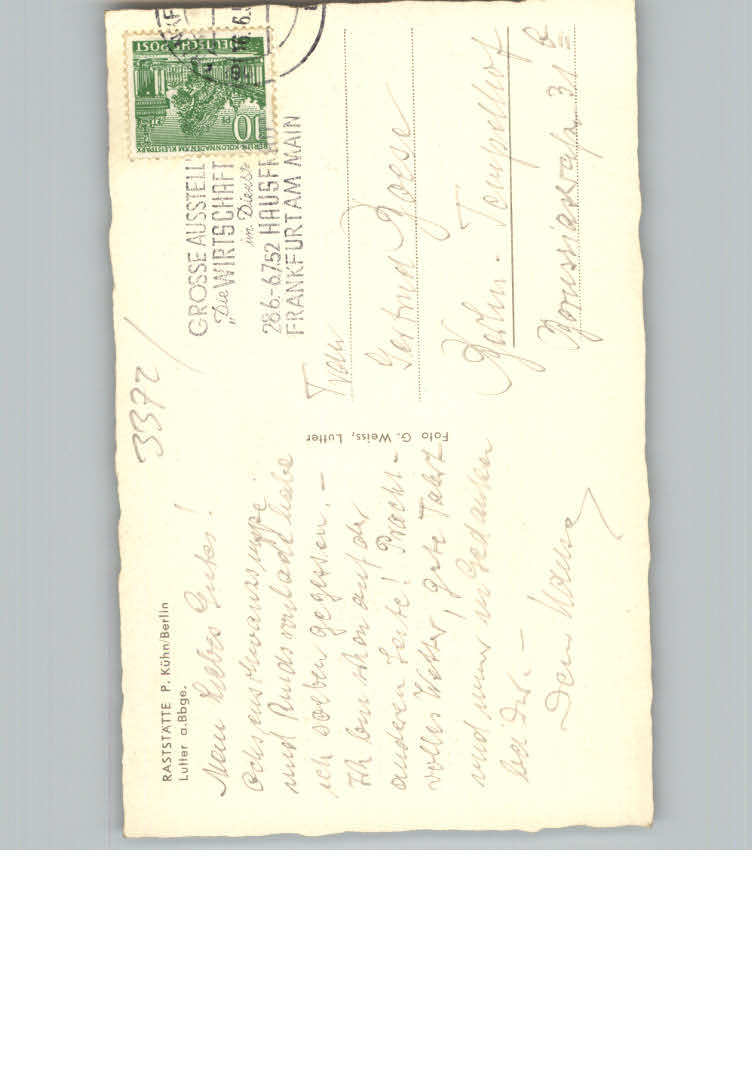 RASTSTÄTTE P. Kühn/Berlin
Lutter a.Bbge.
3372
Mein liebes Gutes!
Ochsenschwanzsuppe
und Rindsroulade habe
ich soeben gegessen. –
Ich bin schon auf der
anderen Seite! Pracht-
volles Wetter, gute Fahrt
und immer in Gedanken
bei Dir. –
Dein
Foto G. Weiss, Lutter
DEUTSCHE POST
10
BERLIN-KOLONNADEN AM KLEISTPARK
GROSSE AUSSTELL
"Die WIRTSCHAFT
im Dienste
28.6.-6.7.52 HAUSFR
FRANKFURT AM MAIN
Frau
Gertrud Boese
Berlin-Tempelhof
Borussiastraße 31 b